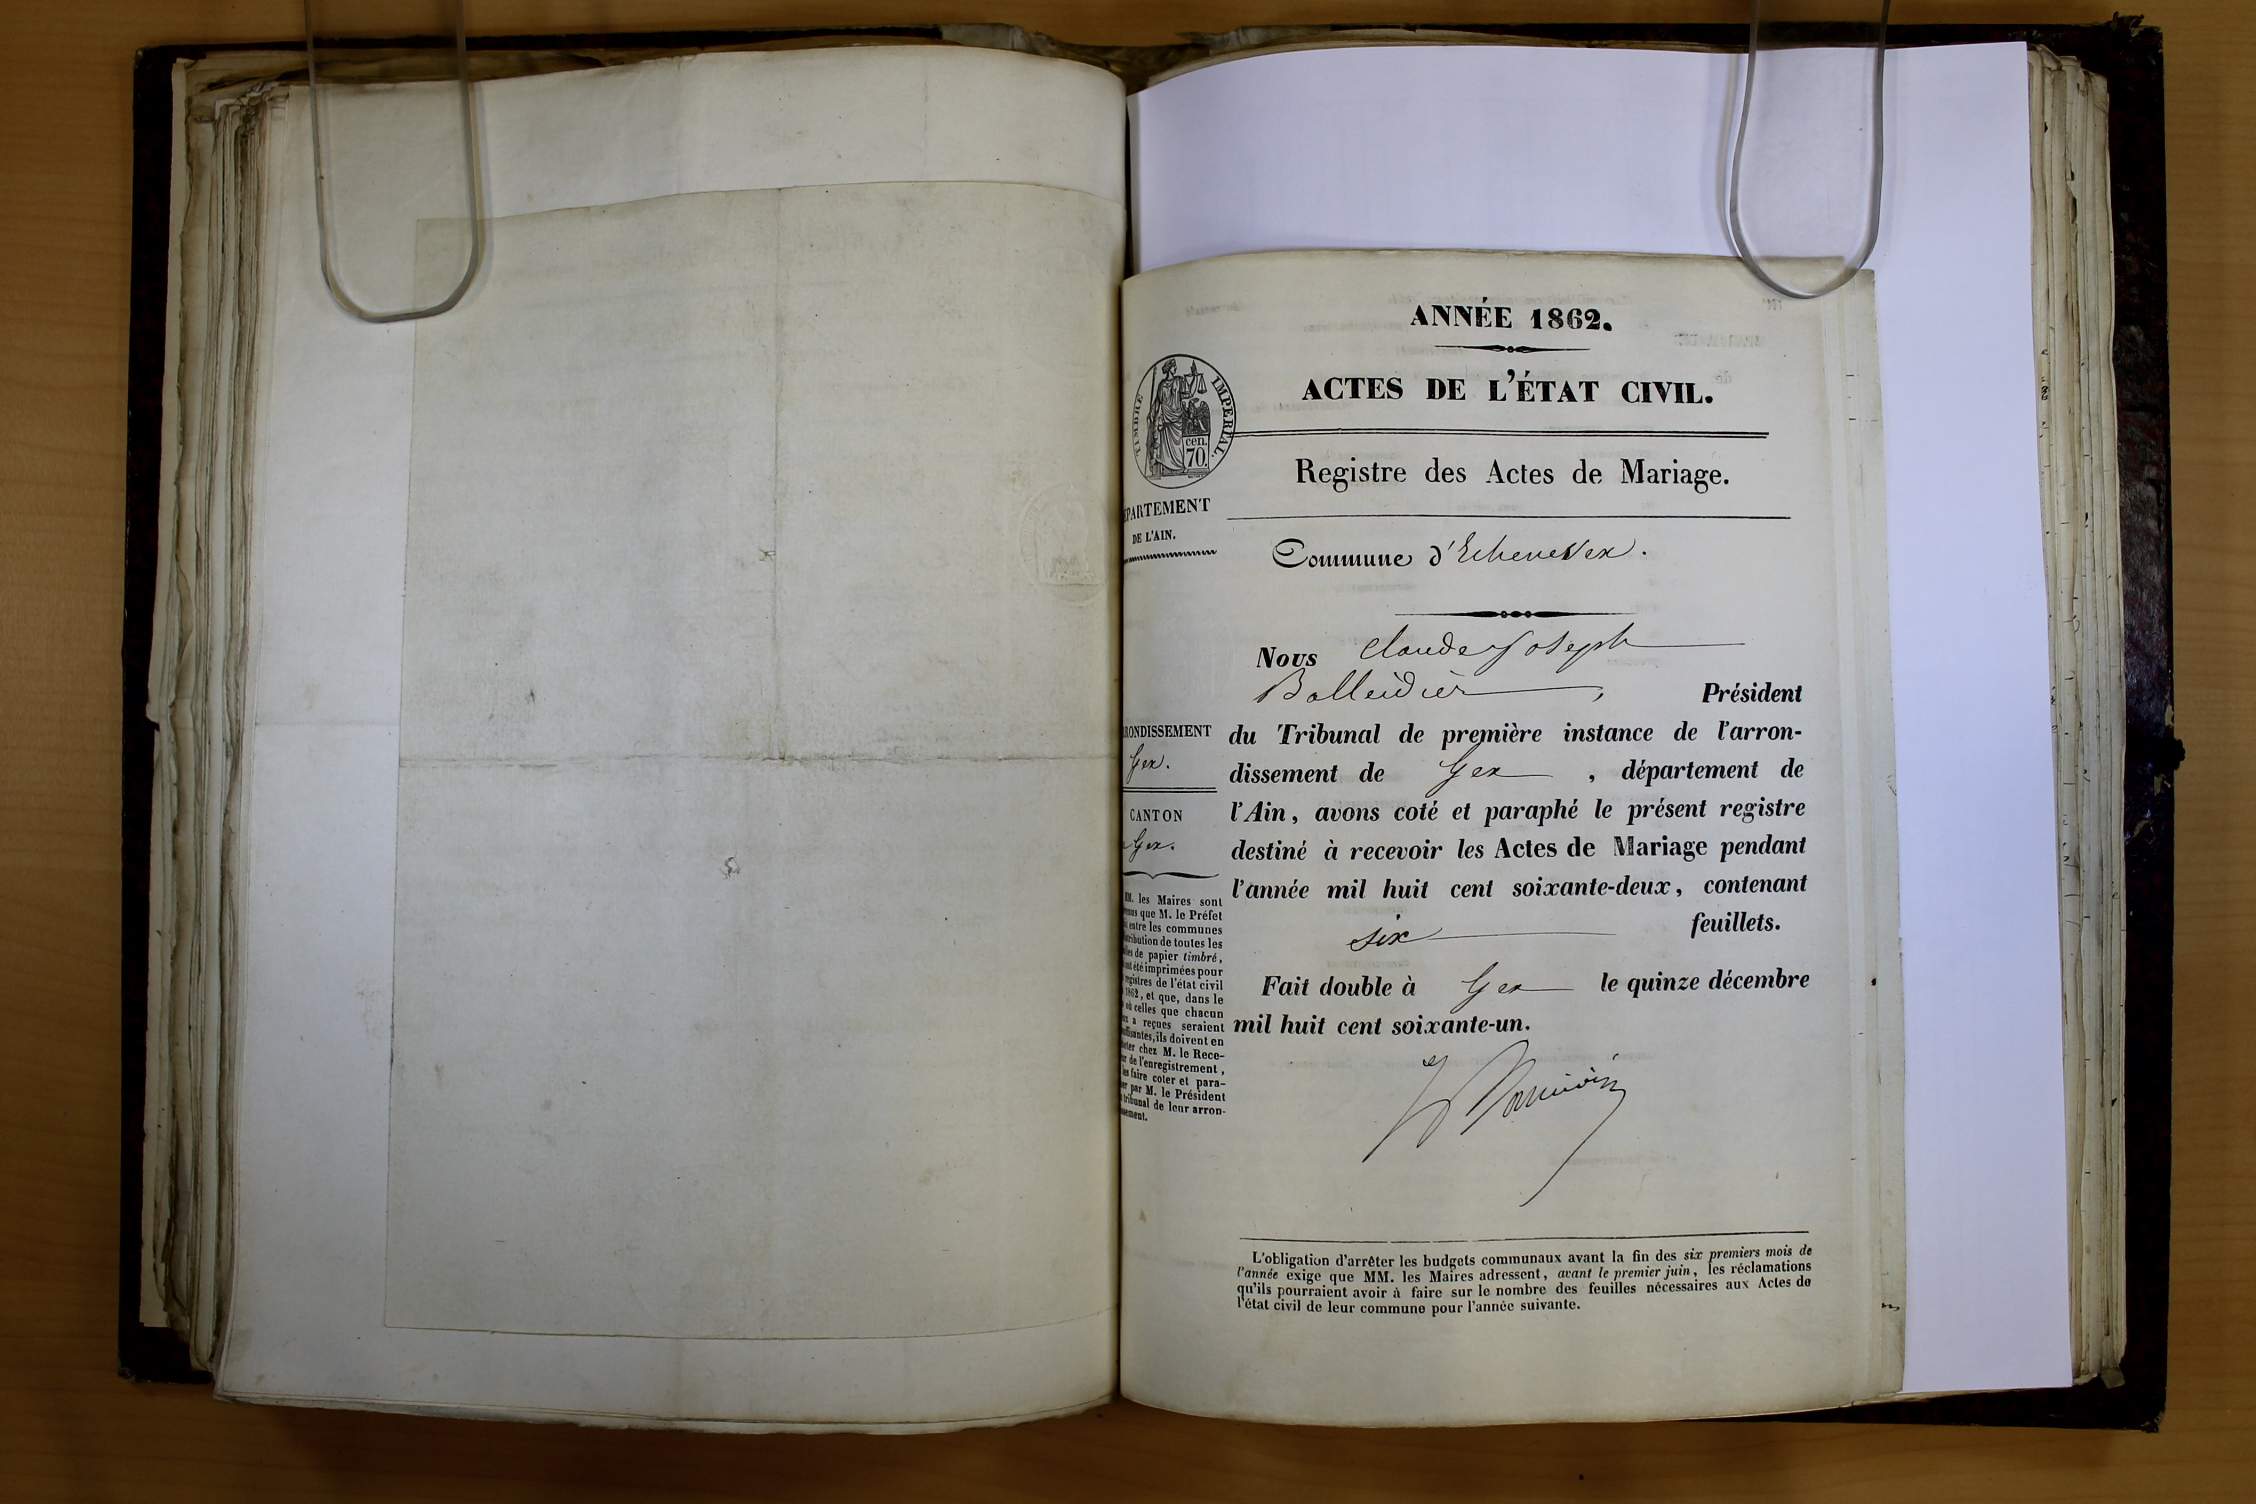 ANNÉE 1862.
ACTES DE L'ÉTAT CIVIL.
TIMBRE IMPERIAL.
cen.
70.
Registre des Actes de Mariage.
DÉPARTEMENT
DE L'AIN.
Commune d'Echenevex.
Nous Claude Joseph
Balleidier, Président
ARRONDISSEMENT
Gex.
CANTON
Gex.
du Tribunal de première instance de l'arron-
dissement de Gex, département de
l'Ain, avons coté et paraphé le présent registre
destiné à recevoir les Actes de Mariage pendant
l'année mil huit cent soixante-deux, contenant
six feuillets.
Fait double à Gex le quinze décembre
mil huit cent soixante-un.
MM. les Maires sont
que M. le Préfet
entre les communes
distribution de toutes les
de papier timbré,
ont été imprimées pour
registres de l'état civil
1862, et que, dans le
où celles que chacun
a reçues seraient
insuffisantes, ils doivent en
acheter chez M. le Rece-
de l'enregistrement,
les faire coter et para-
par M. le Président
tribunal de leur arron-
dissement.
L'obligation d'arrêter les budgets communaux avant la fin des six premiers mois de
l'année exige que MM. les Maires adressent, avant le premier juin, les réclamations
qu'ils pourraient avoir à faire sur le nombre des feuilles nécessaires aux Actes de
l'état civil de leur commune pour l'année suivante.